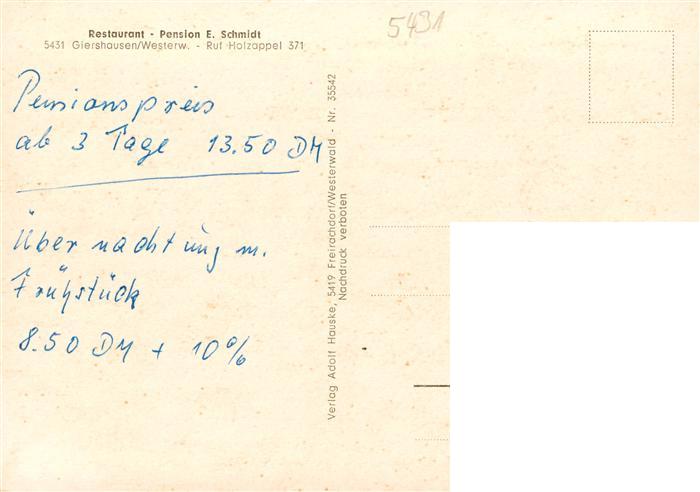 Restaurant - Pension E. Schmidt
5431 Giershausen/Westerw. - Ruf Holzappel 371
5431
Pensionspreis
ab 3 Tage 13.50 DM
Übernachtung m.
Frühstück
8.50 DM + 10%
Verlag Adolf Hauske, 5419 Freirachdorf/Westerwald - Nr. 35542
Nachdruck verboten